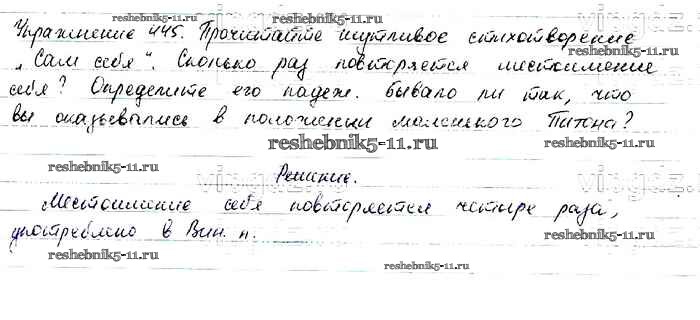 Упражнение 445. Прочитайте шутливое стихотворение
reshebnik5-11.ru
reshebnik5-11.ru
„Сам себя“. Сколько раз повторяется местоимение
reshebnik5-11.ru
себя? Определите его падеж. Бывало ли так, что
reshebnik5-11.ru
вы оказывались в положении маленького Питона?
reshebnik5-11.ru
reshebnik5-11.ru
reshebnik5-11.ru
Решение.
Местоимение себя повторяется четыре раза,
reshebnik5-11.ru
употреблено в Вин. п.
reshebnik5-11.ru
reshebnik5-11.ru